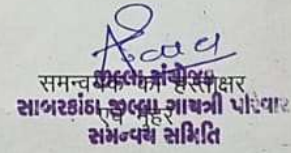 समन्वयक का हस्ताक्षर
જીલ્લા સંયોજક
એवं मुहर
સાબરકાંઠા જીલ્લા ગાયત્રી પરિવાર
સમન્વય સમિતિ